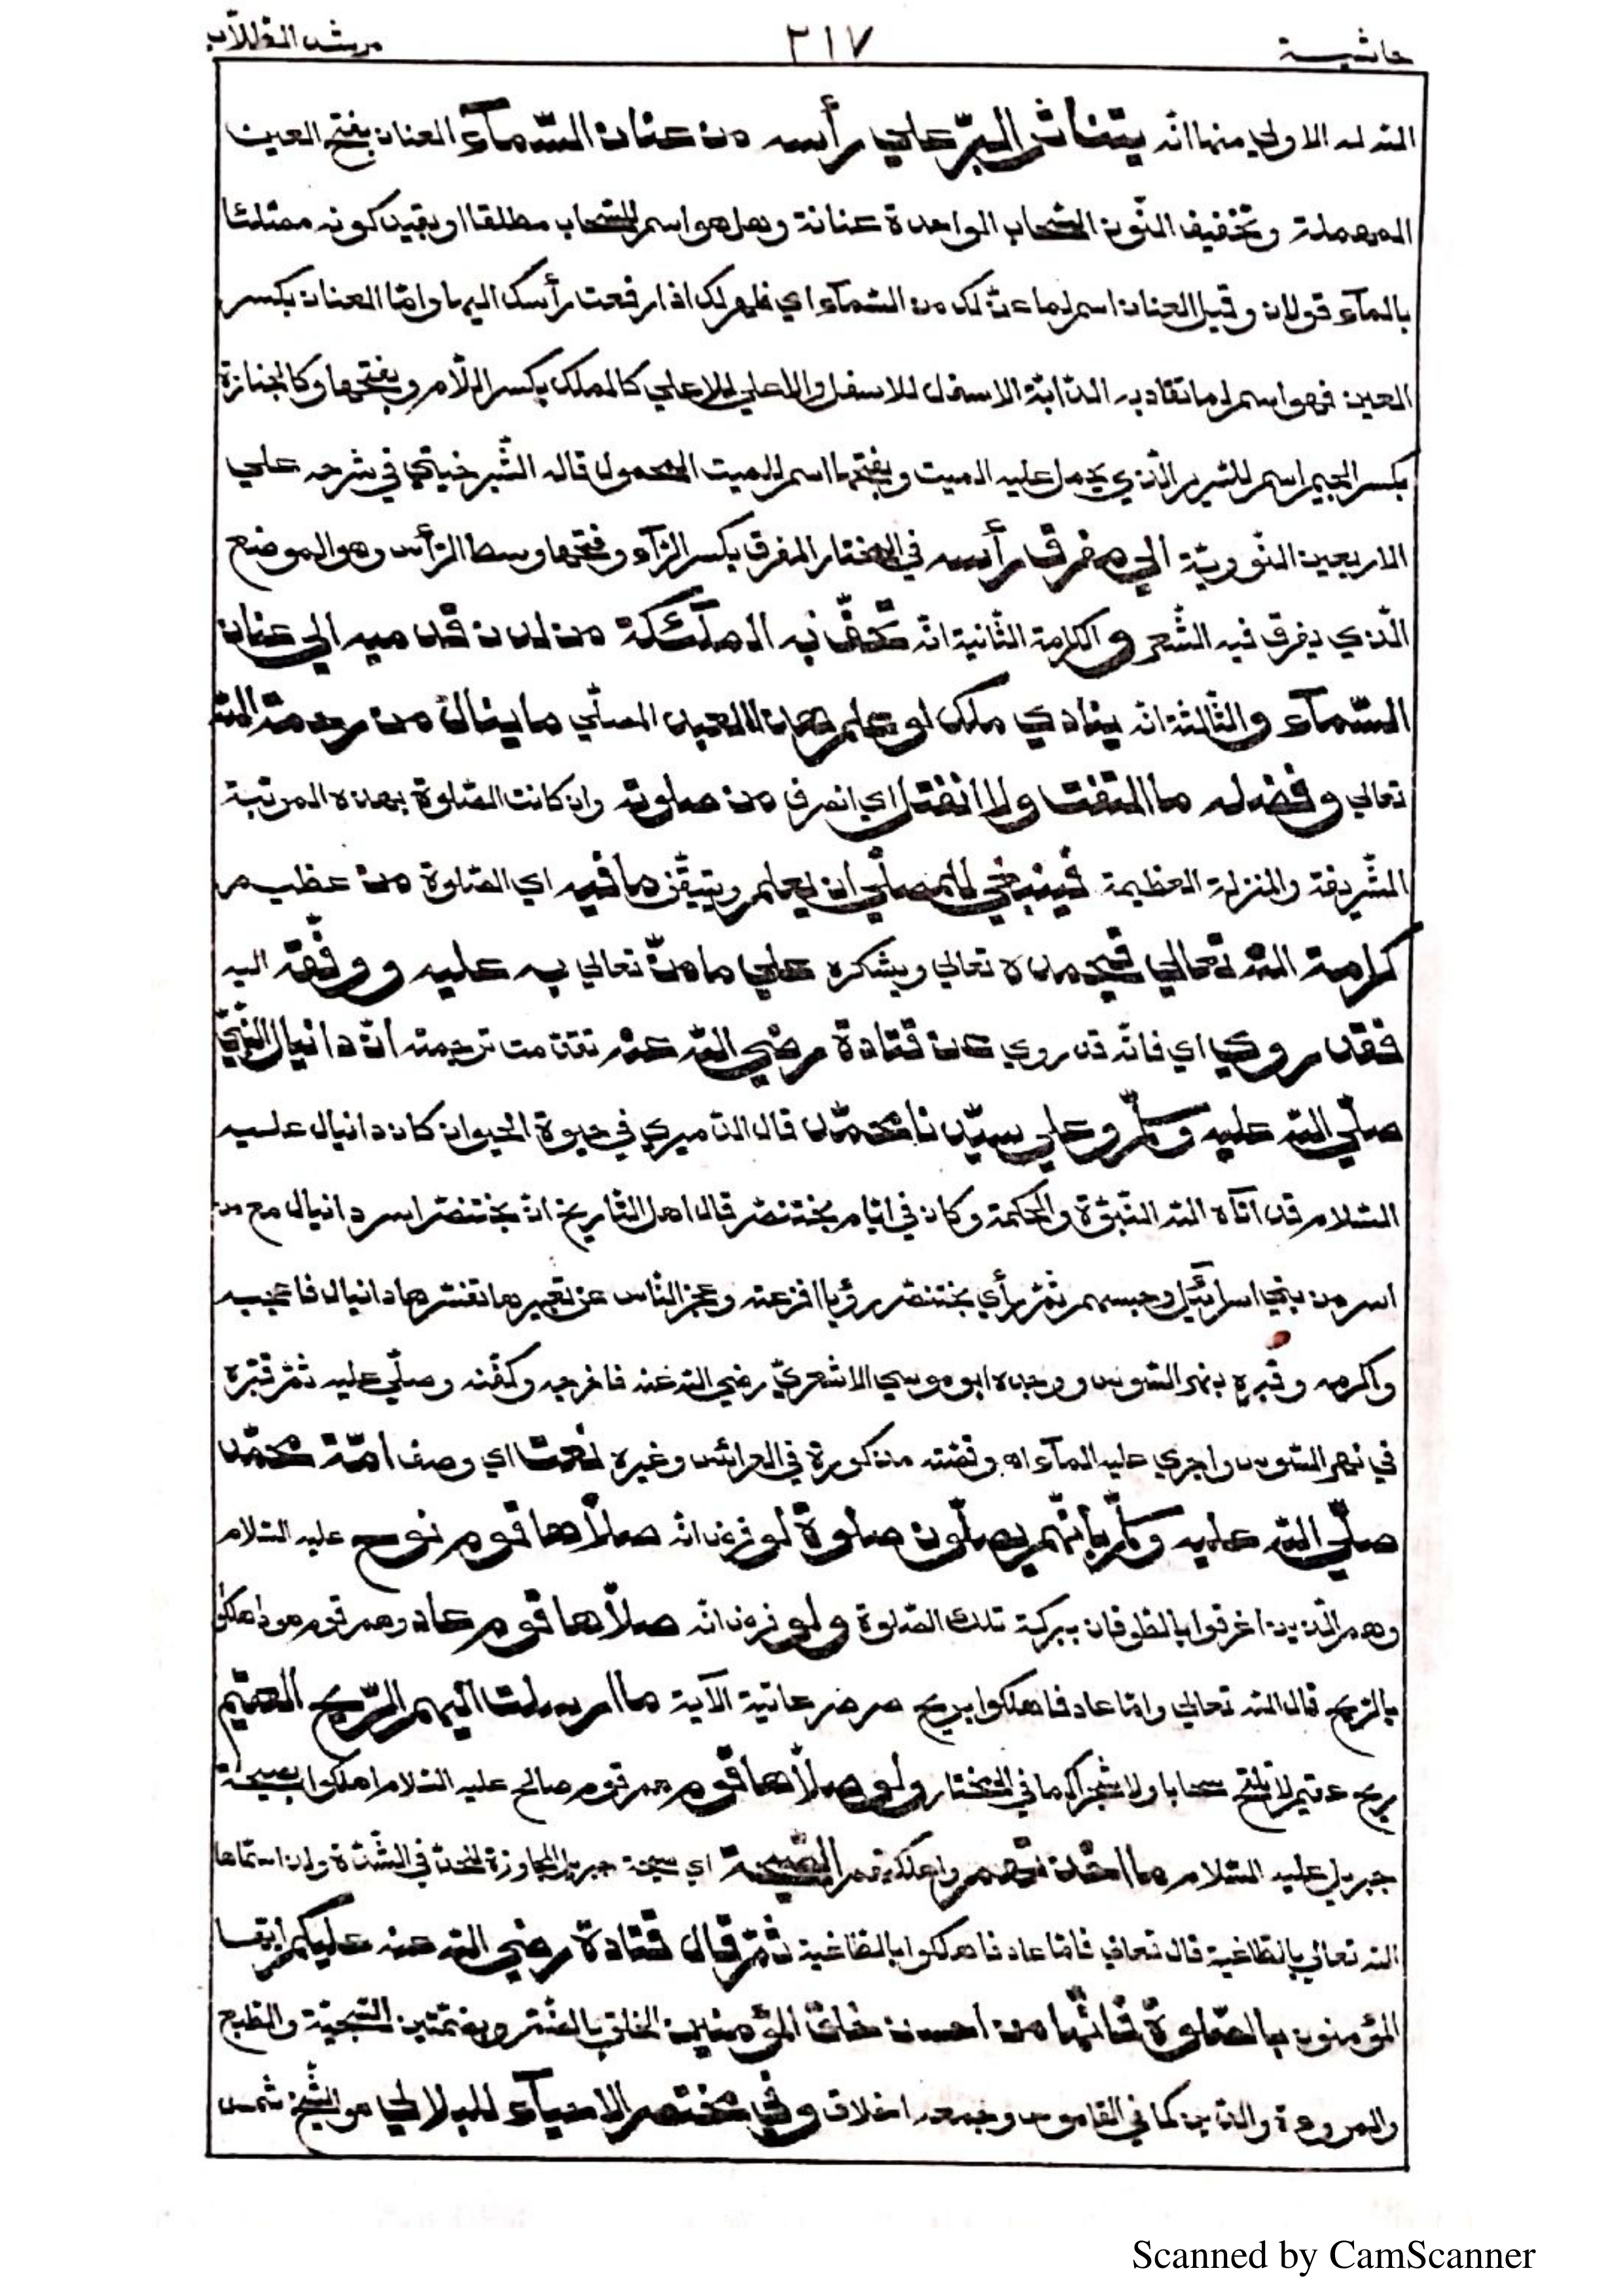 حاشية ٣١٧ مرشد الطّلّاب
الله له الاولي منها انّه يتناثر البرّ علي رأسه من عنان السّمآء العنان بفتح العين
المهملة وتخفيف النّون السّحاب الواحدة عنانة وهل هو اسم للسّحاب مطلقا او بقيد كونه ممتلئا
بالمآء قولان وقيل العنان اسم لما عنّ لك من السّمآء اي ظهر لك اذا رفعت رأسك اليها وامّا العنان بكسر
العين فهو اسم لما تقاد به الدّابّة الاسفل للاسفل والاعلي للاعلي كالملك بكسر اللّام وبفتحها وكالجنازة
بكسر الجيم اسم للسّرير الّذي يحمل عليه الميت وبفتحها اسم للميت المحمول قاله الشّبرخيتي في شرحه علي
الاربعين النّوويّة الي مفرق رأسه في المختار المفرق بكسر الرّآء وفتحها وسط الرّأس وهو الموضع
الّذي يفرق فيه الشّعر والكرامة الثّانية انّه تحفّ به الملآئكة من لدن قدميه الي عنان
السّمآء والثّالثة انّه ينادي ملك لو علم هذا العبد المصلّي ما ينال من رحمة الله
تعالي وفضله ما التفت ولا انفتل اي انصرف من صلوته وان كانت الصّلوة بهذه المرتبة
الشّريفة والمنزلة العظيمة فينبغي للمصلّي ان يعلم ويتيقّن ما فيه اي الصّلوة من عظيم
كرامة الله تعالي فيحمده تعالي ويشكره علي ما منّ تعالي به عليه ووفّقه اليه
فقد روي اي فانّه قد روي عن قتادة رضي الله عنه تقدّمت ترجمته انّ دانيال النّبيّ
صلّي الله عليه وسلّم وعلي سيّدنا محمّد قال الدّميري في حيوة الحيوان كان دانيال عليه
السّلام قد آتاه الله النّبوّة والحكمة وكان في ايّام بختنصّر قال اهل التّاريخ انّ بختنصّر اسر دانيال مع من
اسر من بني اسرآئيل وحبسهم ثمّ رأي بختنصّر رؤيا افزعته وعجز النّاس عن تعبيرها ففسّرها دانيال فاعجبه
واكرمه وقبره بنهر السّوس ووجده ابو موسي الاشعريّ رضي الله عنه فاخرجه وكفّنه وصلّي عليه ثمّ قبّره
في نهر السّوس واجري عليه المآء اه وقصّته مذكورة في العرآئس وغيره نعت اي وصف امّة محمّد
صلّي الله عليه وسلّم بانّهم يصلّون صلوة لو فرض انّه صلّاها قوم نوح عليه السّلام
وهم الّذين اغرقوا بالطّوفان ببركة تلك الصّلوة ولو فرض انّه صلّاها قوم عاد وهم قوم هود اهلكوا
بالرّيح قال الله تعالي وامّا عاد فاهلكوا بريح صرصر عاتية الآية ما ارسلت اليهم الرّيح العقيم
ريح عقيم لا تلقح سحابا ولا شجرا كما في المختار ولو صلّاها قوم هم قوم صالح عليه السّلام اهلكوا بصيحة
جبريل عليه السّلام ما اخذتهم واهلكتهم الصّيحة اي صيحة جبريل المجاوزة للحدّ في الشّدّة ولذا سمّاها
الله تعالي بالطّاغية قال تعالي فامّا عاد فاهلكوا بالطّاغية ثمّ قال قتادة رضي الله عنه عليكم ايّها
المؤمنون بالصّلوة فانّها من احسن خلق المؤمنين الخلق بالضّمّ وبضمّتين السّجيّة والطّبع
والمروءة والدّين كما في القاموس وجمعه اخلاق وفي مختصر الاحيآء للبلالي هو الشّيخ شمس
Scanned by CamScanner